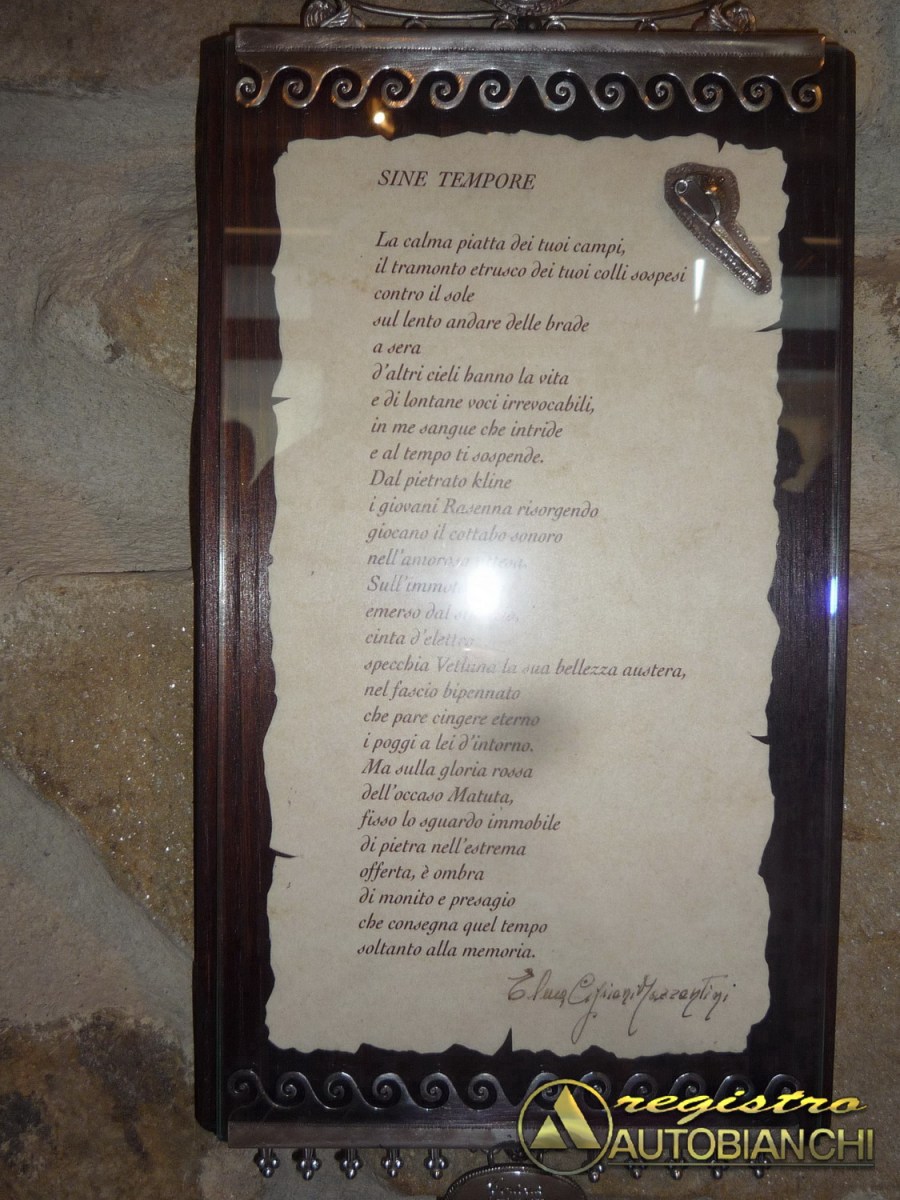 SINE TEMPORE
La calma piatta dei tuoi campi,
il tramonto etrusco dei tuoi colli sospesi
contro il sole
sul lento andare delle brade
a sera
d'altri cieli hanno la vita
e di lontane voci irrevocabili,
in me sangue che intride
e al tempo ti sospende.
Dal pietrato kline
i giovani Rasenna risorgendo
giocano il cottabo sonoro
nell'amorosa
Sull'immot
emerso dal
cinta d'elettro
specchia Vetluna la sua bellezza austera,
nel fascio bipennato
che pare cingere eterno
i poggi a lei d'intorno.
Ma sulla gloria rossa
dell'occaso Matuta,
fisso lo sguardo immobile
di pietra nell'estrema
offerta, è ombra
di monito e presagio
che consegna quel tempo
soltanto alla memoria.
registro
AUTOBIANCHI